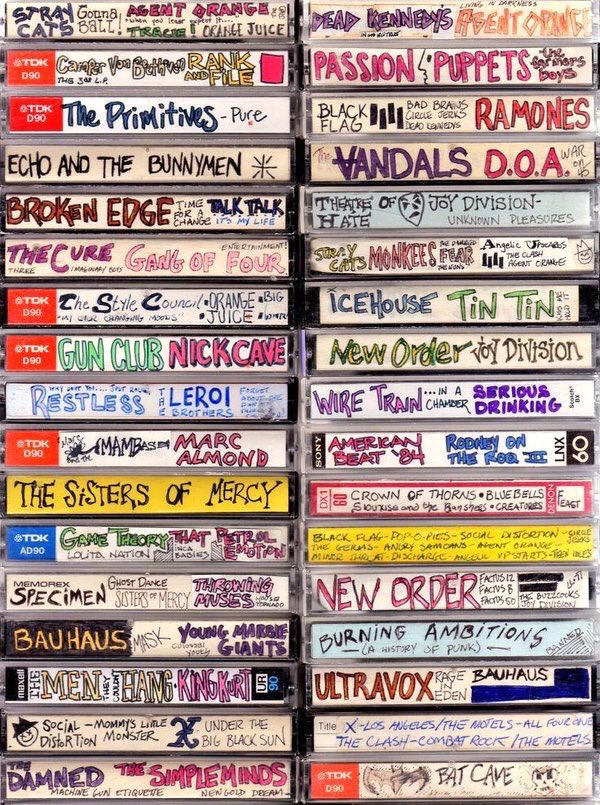 STRAY CATS Gonna BALL! AGENT ORANGE
"When you least expect it..."
TRACIE! ORANGE JUICE
TDK D90 Camper Van Beethoven RANK AND FILE
THE 3rd L.P.
TDK D90 The Primitives - Pure
ECHO AND THE BUNNYMEN
BROKEN EDGE TIME FOR A CHANGE TALK TALK IT'S MY LIFE
THE CURE GANG OF FOUR ENTERTAINMENT!
THREE IMAGINARY BOYS
TDK D90 The Style Council • ORANGE JUICE • BIG
"MY EVER CHANGING MOODS"
TDK D90 GUN CLUB NICK CAVE
RESTLESS WHY DON'T YOU.... JUST ROCK! THE LEROI BROTHERS FORGET ABOUT THE
TDK D90 Marc and the MAMBAS MARC ALMOND
THE SISTERS OF MERCY
TDK AD90 GAME THEORY LOLITA NATION THAT PETROL EMOTION
BABIES
MEMOREX SPECIMEN GHOST DANCE SISTERS OF MERCY THROWING MUSES HOUSE TORNADO
BAUHAUS MASK YOUNG MARBLE GIANTS
COLOSSAL YOUTH
maxell THE MEN THEY COULDN'T HANG • KING KURT UR 90
SOCIAL DISTORTION - MOMMY'S LITTLE MONSTER X UNDER THE BIG BLACK SUN
THE DAMNED THE SIMPLE MINDS
MACHINE GUN ETIQUETTE NEW GOLD DREAM
DEAD KENNEDYS LIVING IN DARKNESS AGENT ORANGE
PASSION PUPPETS the farmers boys
BLACK FLAG BAD BRAINS CIRCLE JERKS DEAD KENNEDYS RAMONES
The VANDALS D.O.A. WAR on 45
THEATRE OF HATE JOY DIVISION -
UNKNOWN PLEASURES
STRAY CATS MONKEES THE DAMNED FEAR THE NUNS Angelic Upstarts THE CLASH AGENT ORANGE
ICEHOUSE TIN TIN KISS ME HOLD IT
New Order Joy Division
WIRE TRAIN ...IN A CHAMBER SERIOUS DRINKING Scotch BX
SONY AMERICAN BEAT '84 RODNEY ON THE ROQ III LNX 60
DX1 60 CROWN OF THORNS • BLUEBELLS DENON F EAST
Siouxsie and the Banshees • CREATURES
BLACK FLAG - POP-O-PIES - SOCIAL DISTORTION - CIRCLE JERKS
THE GERMS - ANGRY SAMOANS - AGENT ORANGE -
MINOR THREAT - DISCHARGE - ANGELIC UPSTARTS -
NEW ORDER FACTUS 12 FACTUS 8 FACTUS 50 THE BUZZCOCKS JOY DIVISION
BURNING AMBITIONS
(A HISTORY OF PUNK) BANNED
ULTRAVOX RAGE IN EDEN BAUHAUS
Title X - LOS ANGELES / THE MOTELS - ALL FOUR ONE
THE CLASH - COMBAT ROCK / THE MOTELS
TDK D90 BAT CAVE